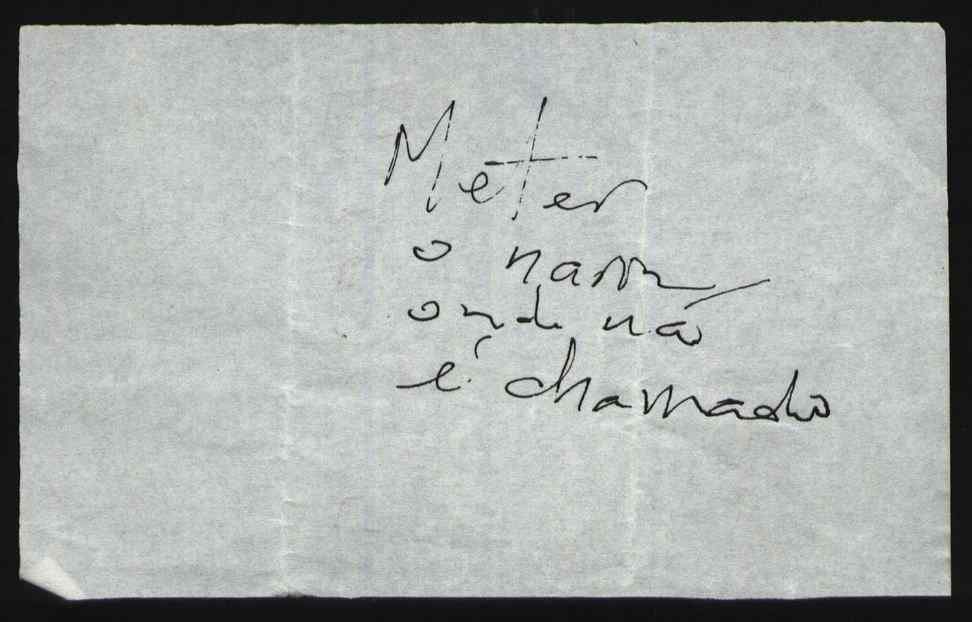 Meter
o nariz
onde não
é chamado